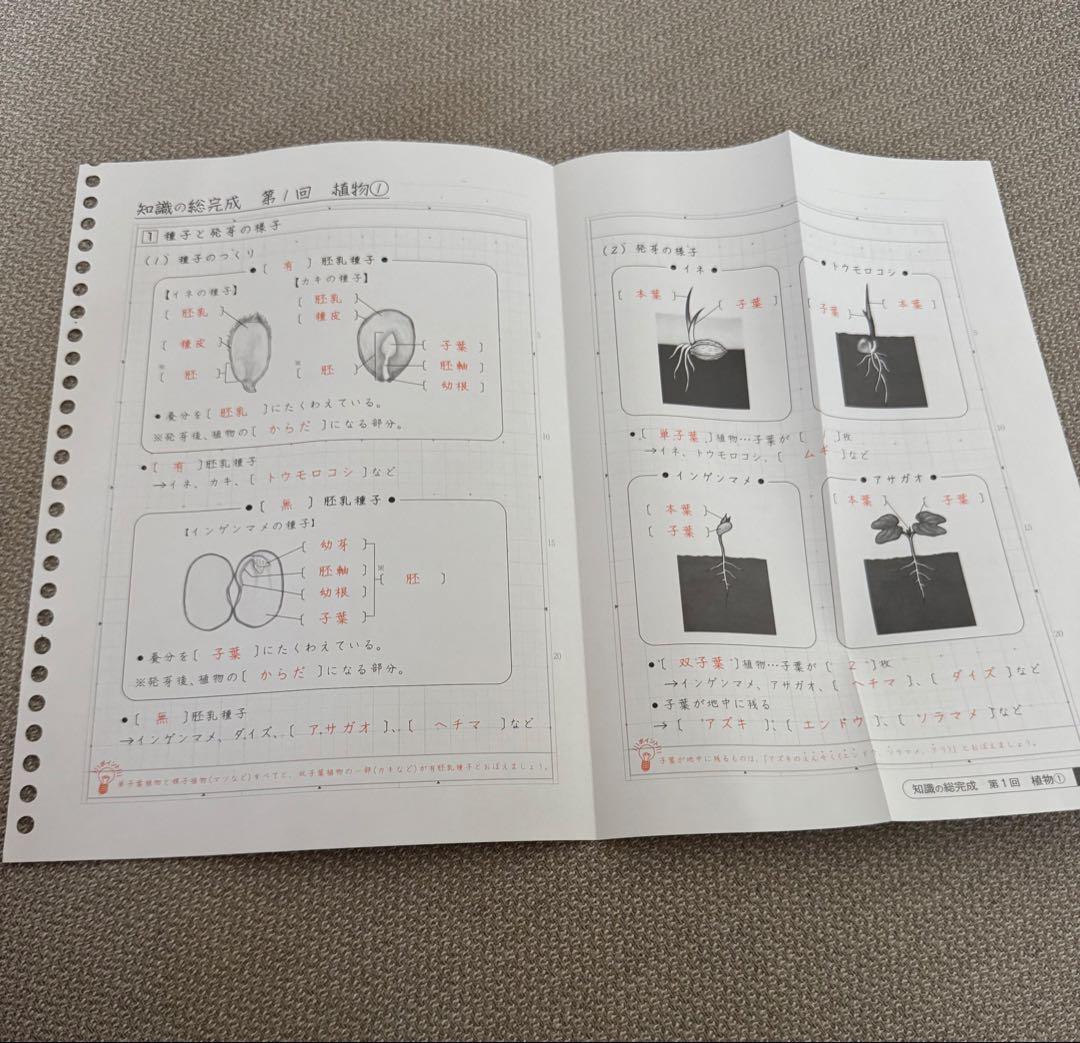 知識の総完成 第1回 植物①
1 種子と発芽の様子
(1) 種子のつくり
●[ 有 ]胚乳種子●
【イネの種子】
[ 胚乳 ]
[ 種皮 ]
※[ 胚 ]
【カキの種子】
[ 胚乳 ]
[ 種皮 ]
※[ 胚 ]
[ 子葉 ]
[ 胚軸 ]
[ 幼根 ]
●養分を[ 胚乳 ]にたくわえている。
※発芽後、植物の[ からだ ]になる部分。
●[ 有 ]胚乳種子
→イネ、カキ、[ トウモロコシ ]など
●[ 無 ]胚乳種子●
【インゲンマメの種子】
[ 幼芽 ]
[ 胚軸 ]
[ 幼根 ]
[ 子葉 ]
※[ 胚 ]
●養分を[ 子葉 ]にたくわえている。
※発芽後、植物の[ からだ ]になる部分。
●[ 無 ]胚乳種子
→インゲンマメ、ダイズ、[ アサガオ ]、[ ヘチマ ]など
ポイント
単子葉植物と裸子植物(マツなど)すべてと、双子葉植物の一部(カキなど)が有胚乳種子とおぼえましょう。
5
10
15
20
(2) 発芽の様子
●イネ●
[ 本葉 ]
[ 子葉 ]
●トウモロコシ●
[ 子葉 ]
[ 本葉 ]
●[ 単子葉 ]植物…子葉が[ 1 ]枚
→イネ、トウモロコシ、[ ムギ ]など
●インゲンマメ●
[ 本葉 ]
[ 子葉 ]
●アサガオ●
[ 本葉 ]
[ 子葉 ]
●[ 双子葉 ]植物…子葉が[ 2 ]枚
→インゲンマメ、アサガオ、[ ヘチマ ]、[ ダイズ ]など
●子葉が地中に残る
→[ アズキ ]、[ エンドウ ]、[ ソラマメ ]など
ポイント
子葉が地中に残るものは、「アズキのえんそく(エンドウ、ソラマメ、クリ)」とおぼえましょう。
5
10
15
20
知識の総完成 第1回 植物①